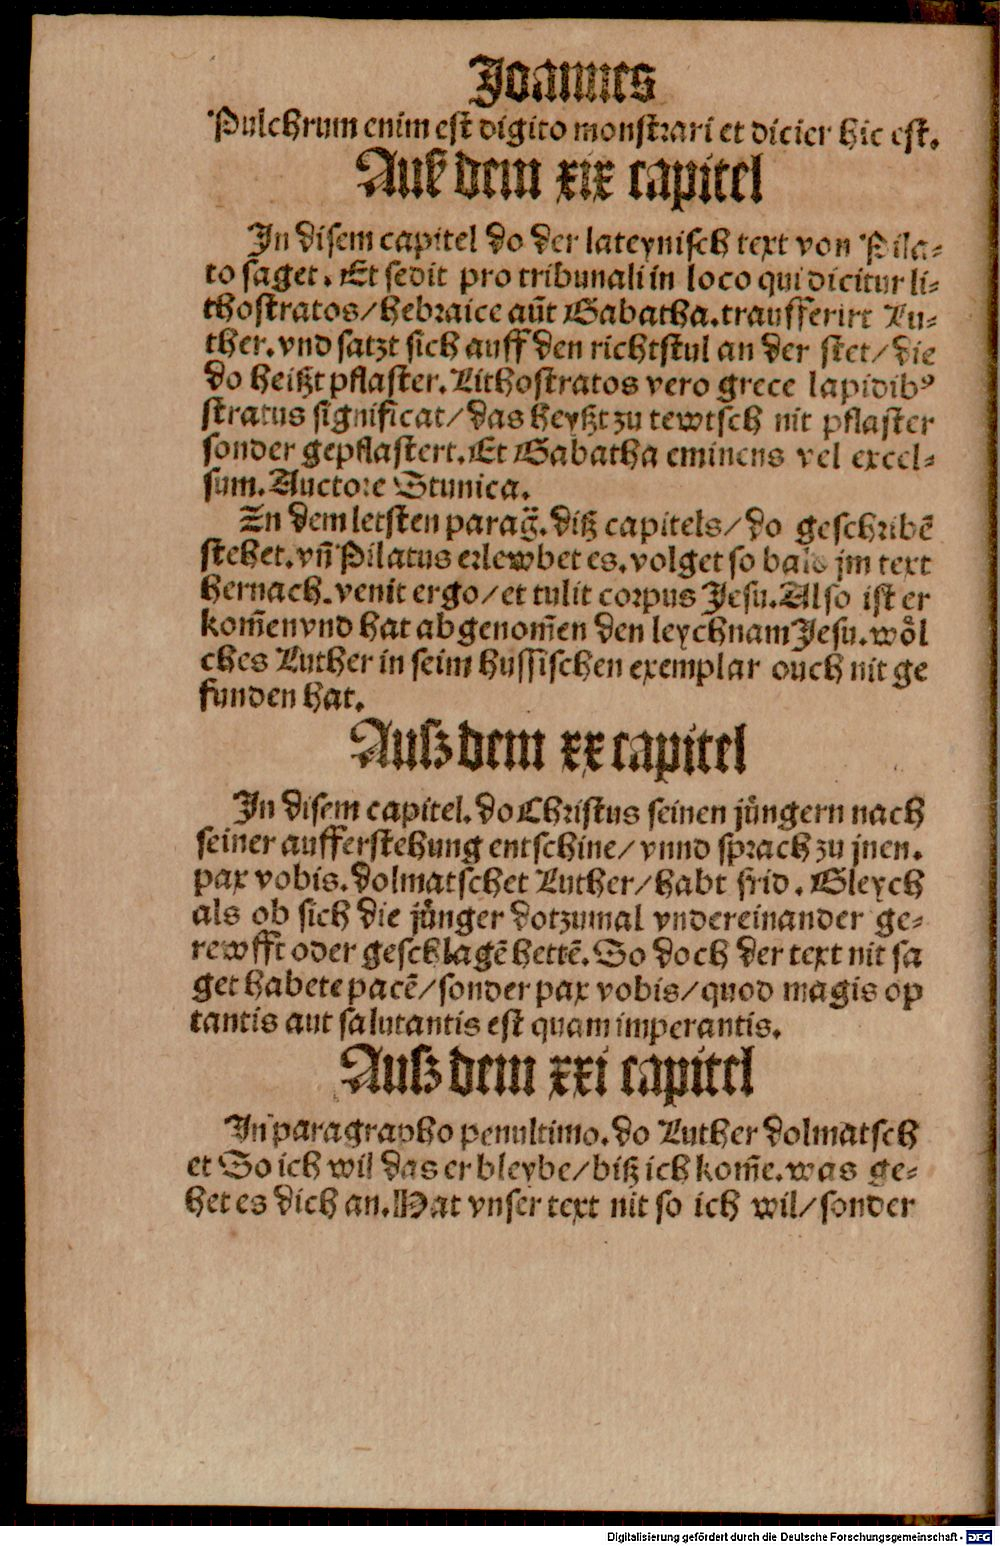 Joannes
Pulchrum enim est digito monstrari et dicier hic est.
Auß dem xix capitel
In disem capitel do der lateynisch text von Pila⸗
to saget. Et sedit pro tribunali in loco qui dicitur li⸗
thostratos/ hebraice aūt Gabatha. transferirt Lu⸗
ther. vnd satzt sich auff den richtstul an der stet/ die
do heißt pflaster. Lithostratos vero grece lapidibꝰ
stratus significat/ das heyßt zu tewtsch nit pflaster
sonder gepflastert. Et Gabatha eminens vel excel⸗
sum. Auctore Stunica.
In dem letsten parag̃. diß capitels/ do geschribē
stehet. vñ Pilatus erlewbet es. volget so bald jm text
hernach. venit ergo/ et tulit corpus Jesu. Also ist er
kom̃en vnd hat abgenom̃en den leychnam Jesu. woͤl
ches Luther in seim hussischen exemplar ouch nit ge
funden hat.
Ausz dem xx capitel
In disem capitel. do Christus seinen juͤngern nach
seiner aufferstehung entschine/ vnnd sprach zu jnen.
pax vobis. dolmatschet Luther/ habt frid. Gleych
als ob sich die juͤnger dotzumal vndereinander ge⸗
rewfft oder geschlagē hettē. So doch der text nit sa
get habete pacē/ sonder pax vobis/ quod magis op
tantis aut salutantis est quam imperantis.
Ausz dem xxi capitel
In paragrapho penultimo. do Luther dolmatsch
et So ich wil das er bleybe/ biß ich kom̃e. was ge⸗
het es dich an. Hat vnser text nit so ich wil/ sonder
Digitalisierung gefördert durch die Deutsche Forschungsgemeinschaft - DFG